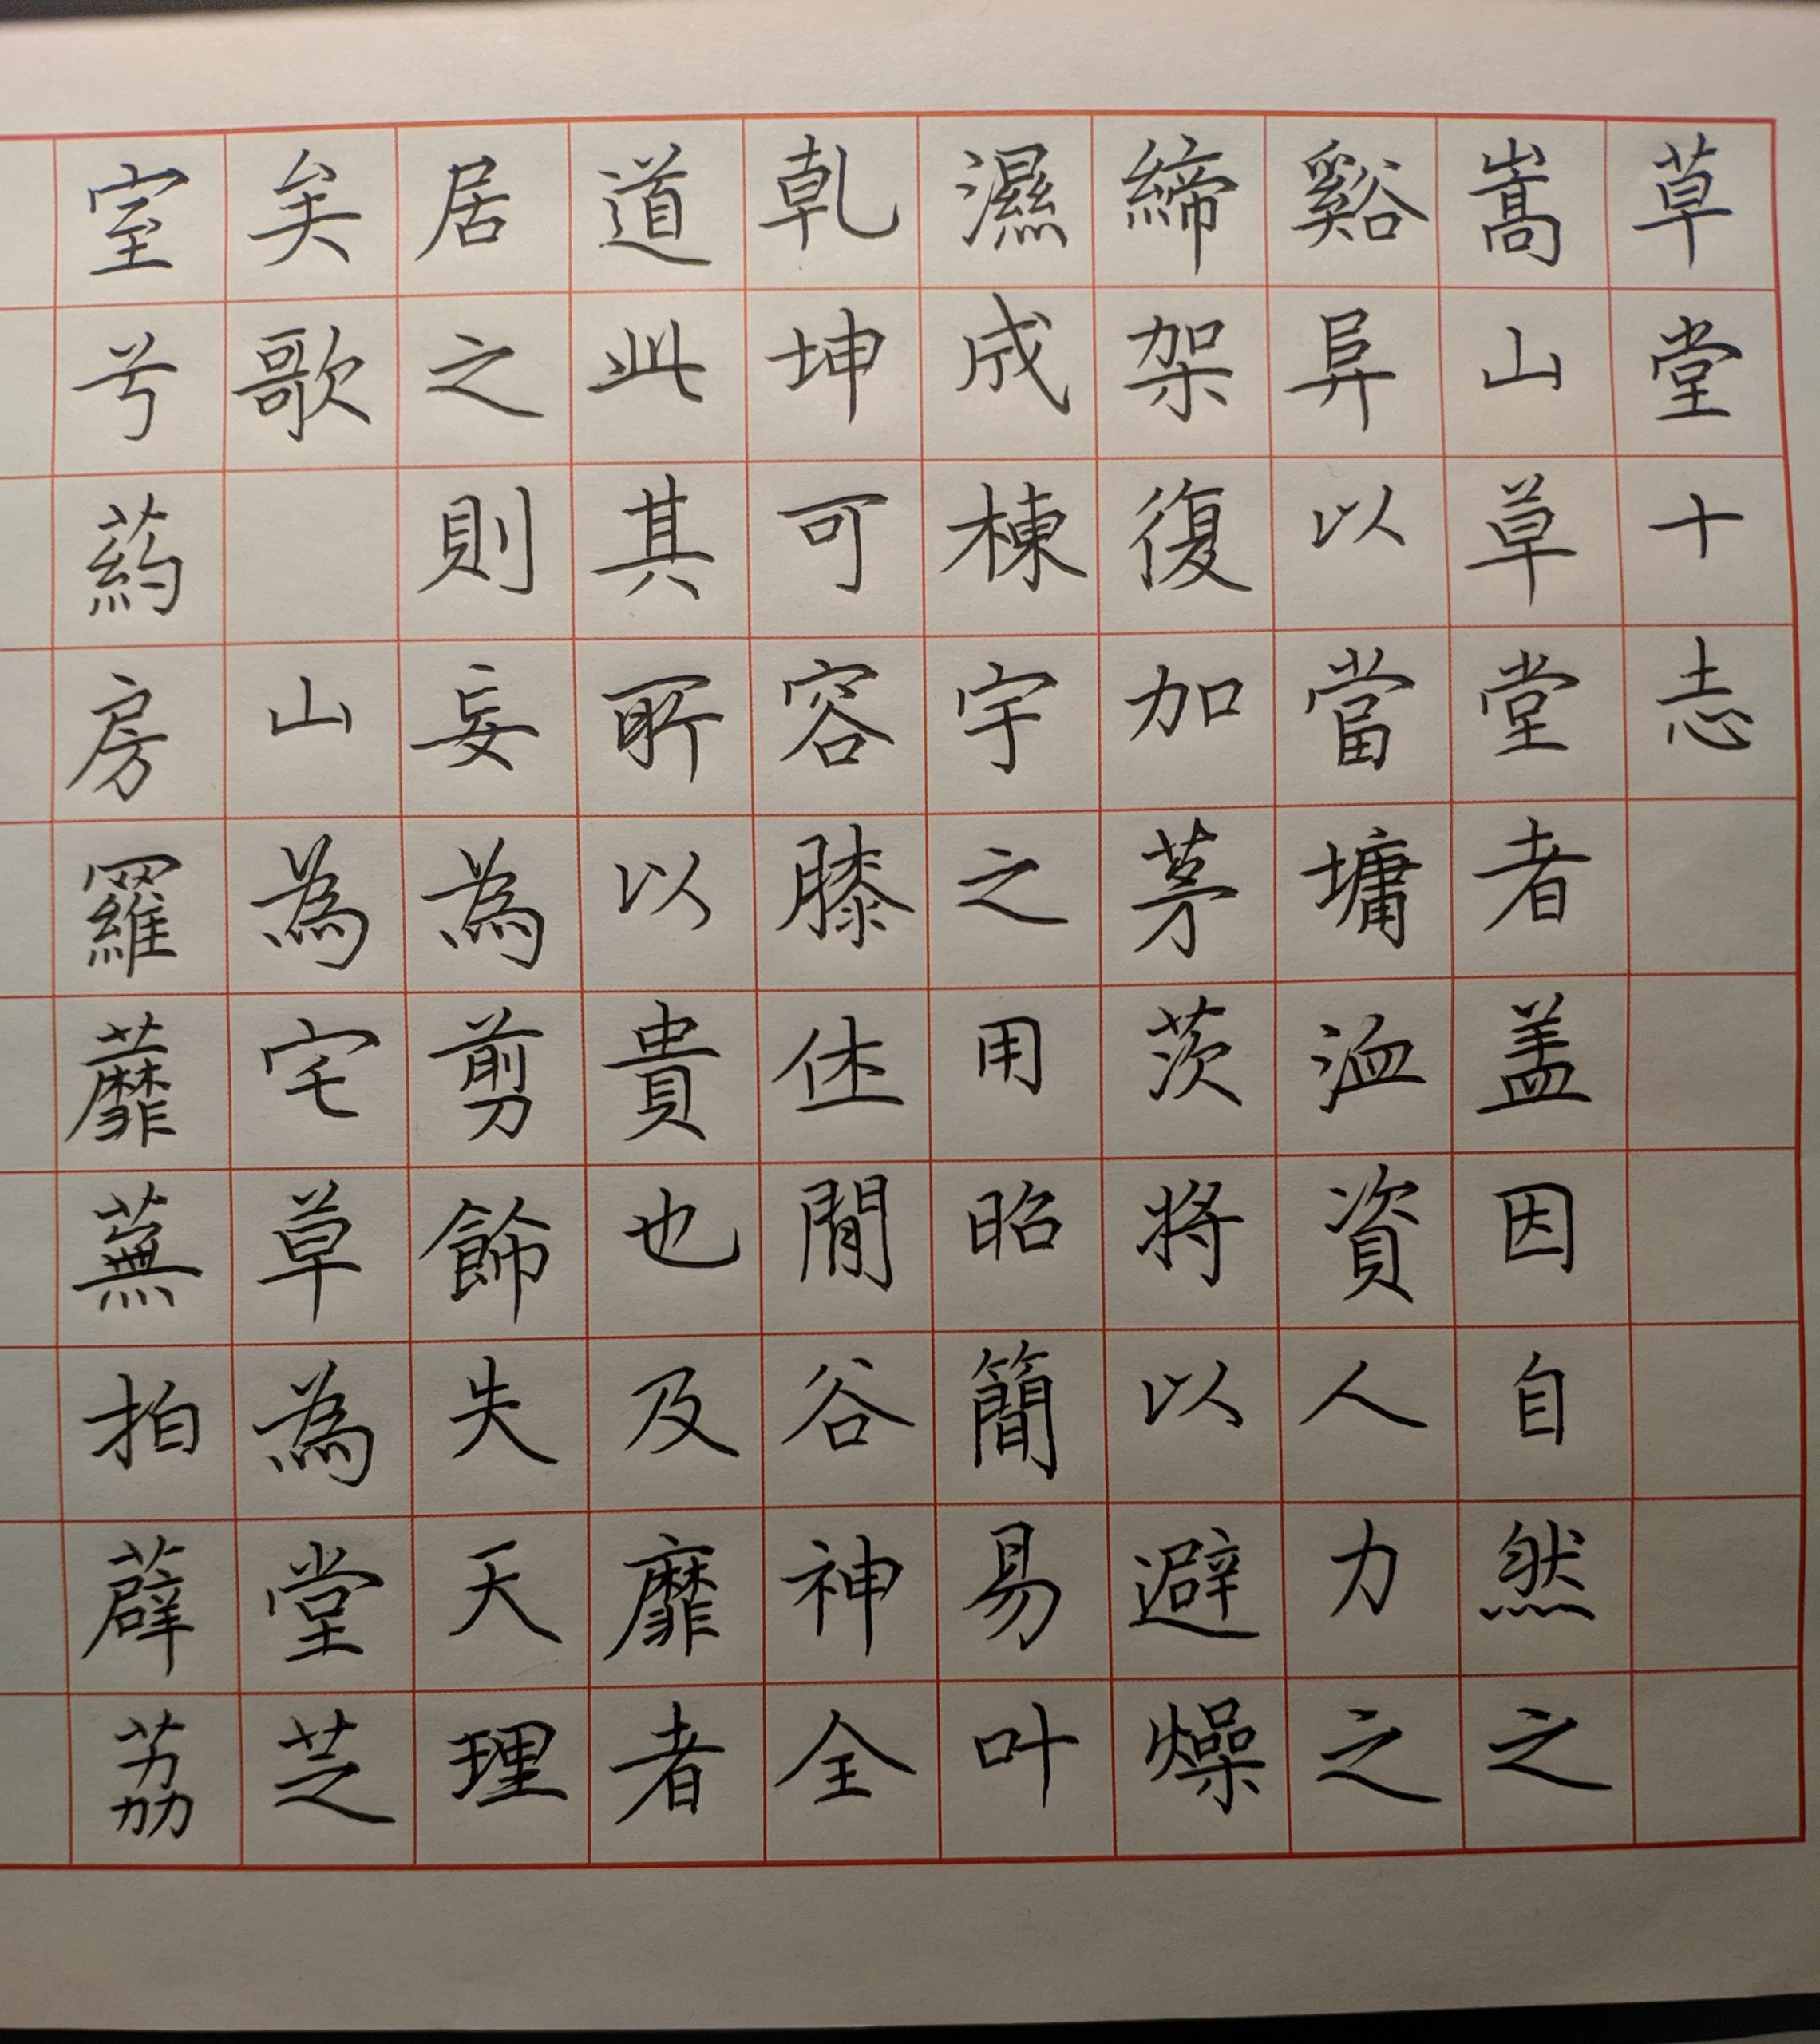 草堂十志
嵩山草堂者盖因自然之
谿阜以當墉洫資人力之
締架復加茅茨將以避燥
濕成棟宇之用昭簡易叶
乾坤可容膝休閒谷神全
道此其所以貴也及靡者
居之則妄為剪餙失天理
矣歌 山為宅草為堂芝
室兮葯房羅蘼蕪拍薜荔